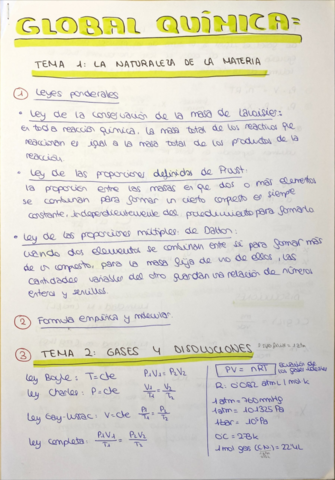 GLOBAL QUÍMICA=
TEMA 1: LA NATURALEZA DE LA MATERIA
① Leyes ponderales
• Ley de la conservación de la masa de Lavoisier:
en toda reacción química. La masa total de los reactivos que
reaccionan es igual a la masa total de los productos de la
reacción.
• Ley de las proporciones definidas de Proust.
la proporción entre las masas en que dos o más elementos
se combinan para formar un cierto compuesto es siempre
constante, independientemente del procedimiento para formarlo
• Ley de las proporciones múltiples de Dalton:
cuando dos elementos se combinan entre sí para formar más
de un compuesto, para la masa fija de uno de ellos, las
cantidades variables del otro guardan una relación de números
enteros y sencillos.
② Formula empírica y molecular.
③ TEMA 2: GASES Y DISOLUCIONES
Ley Boyle: T=cte P₁V₁ = P₂V₂
Ley Charles: P=cte V₁/T₁ = V₂/T₂
Ley Gay-Lussac: V=cte P₁/T₁ = P₂/T₂
Ley completa: P₁V₁/T₁ = P₂V₂/T₂
PV = nRT ecuación de los gases ideales
R: 0'082 atm L / mol k
1 atm = 760 mmHg
1 atm = 101325 Pa
1 bar = 10⁵ Pa
0C = 273k
1 mol gas (C.N.) = 22'4L